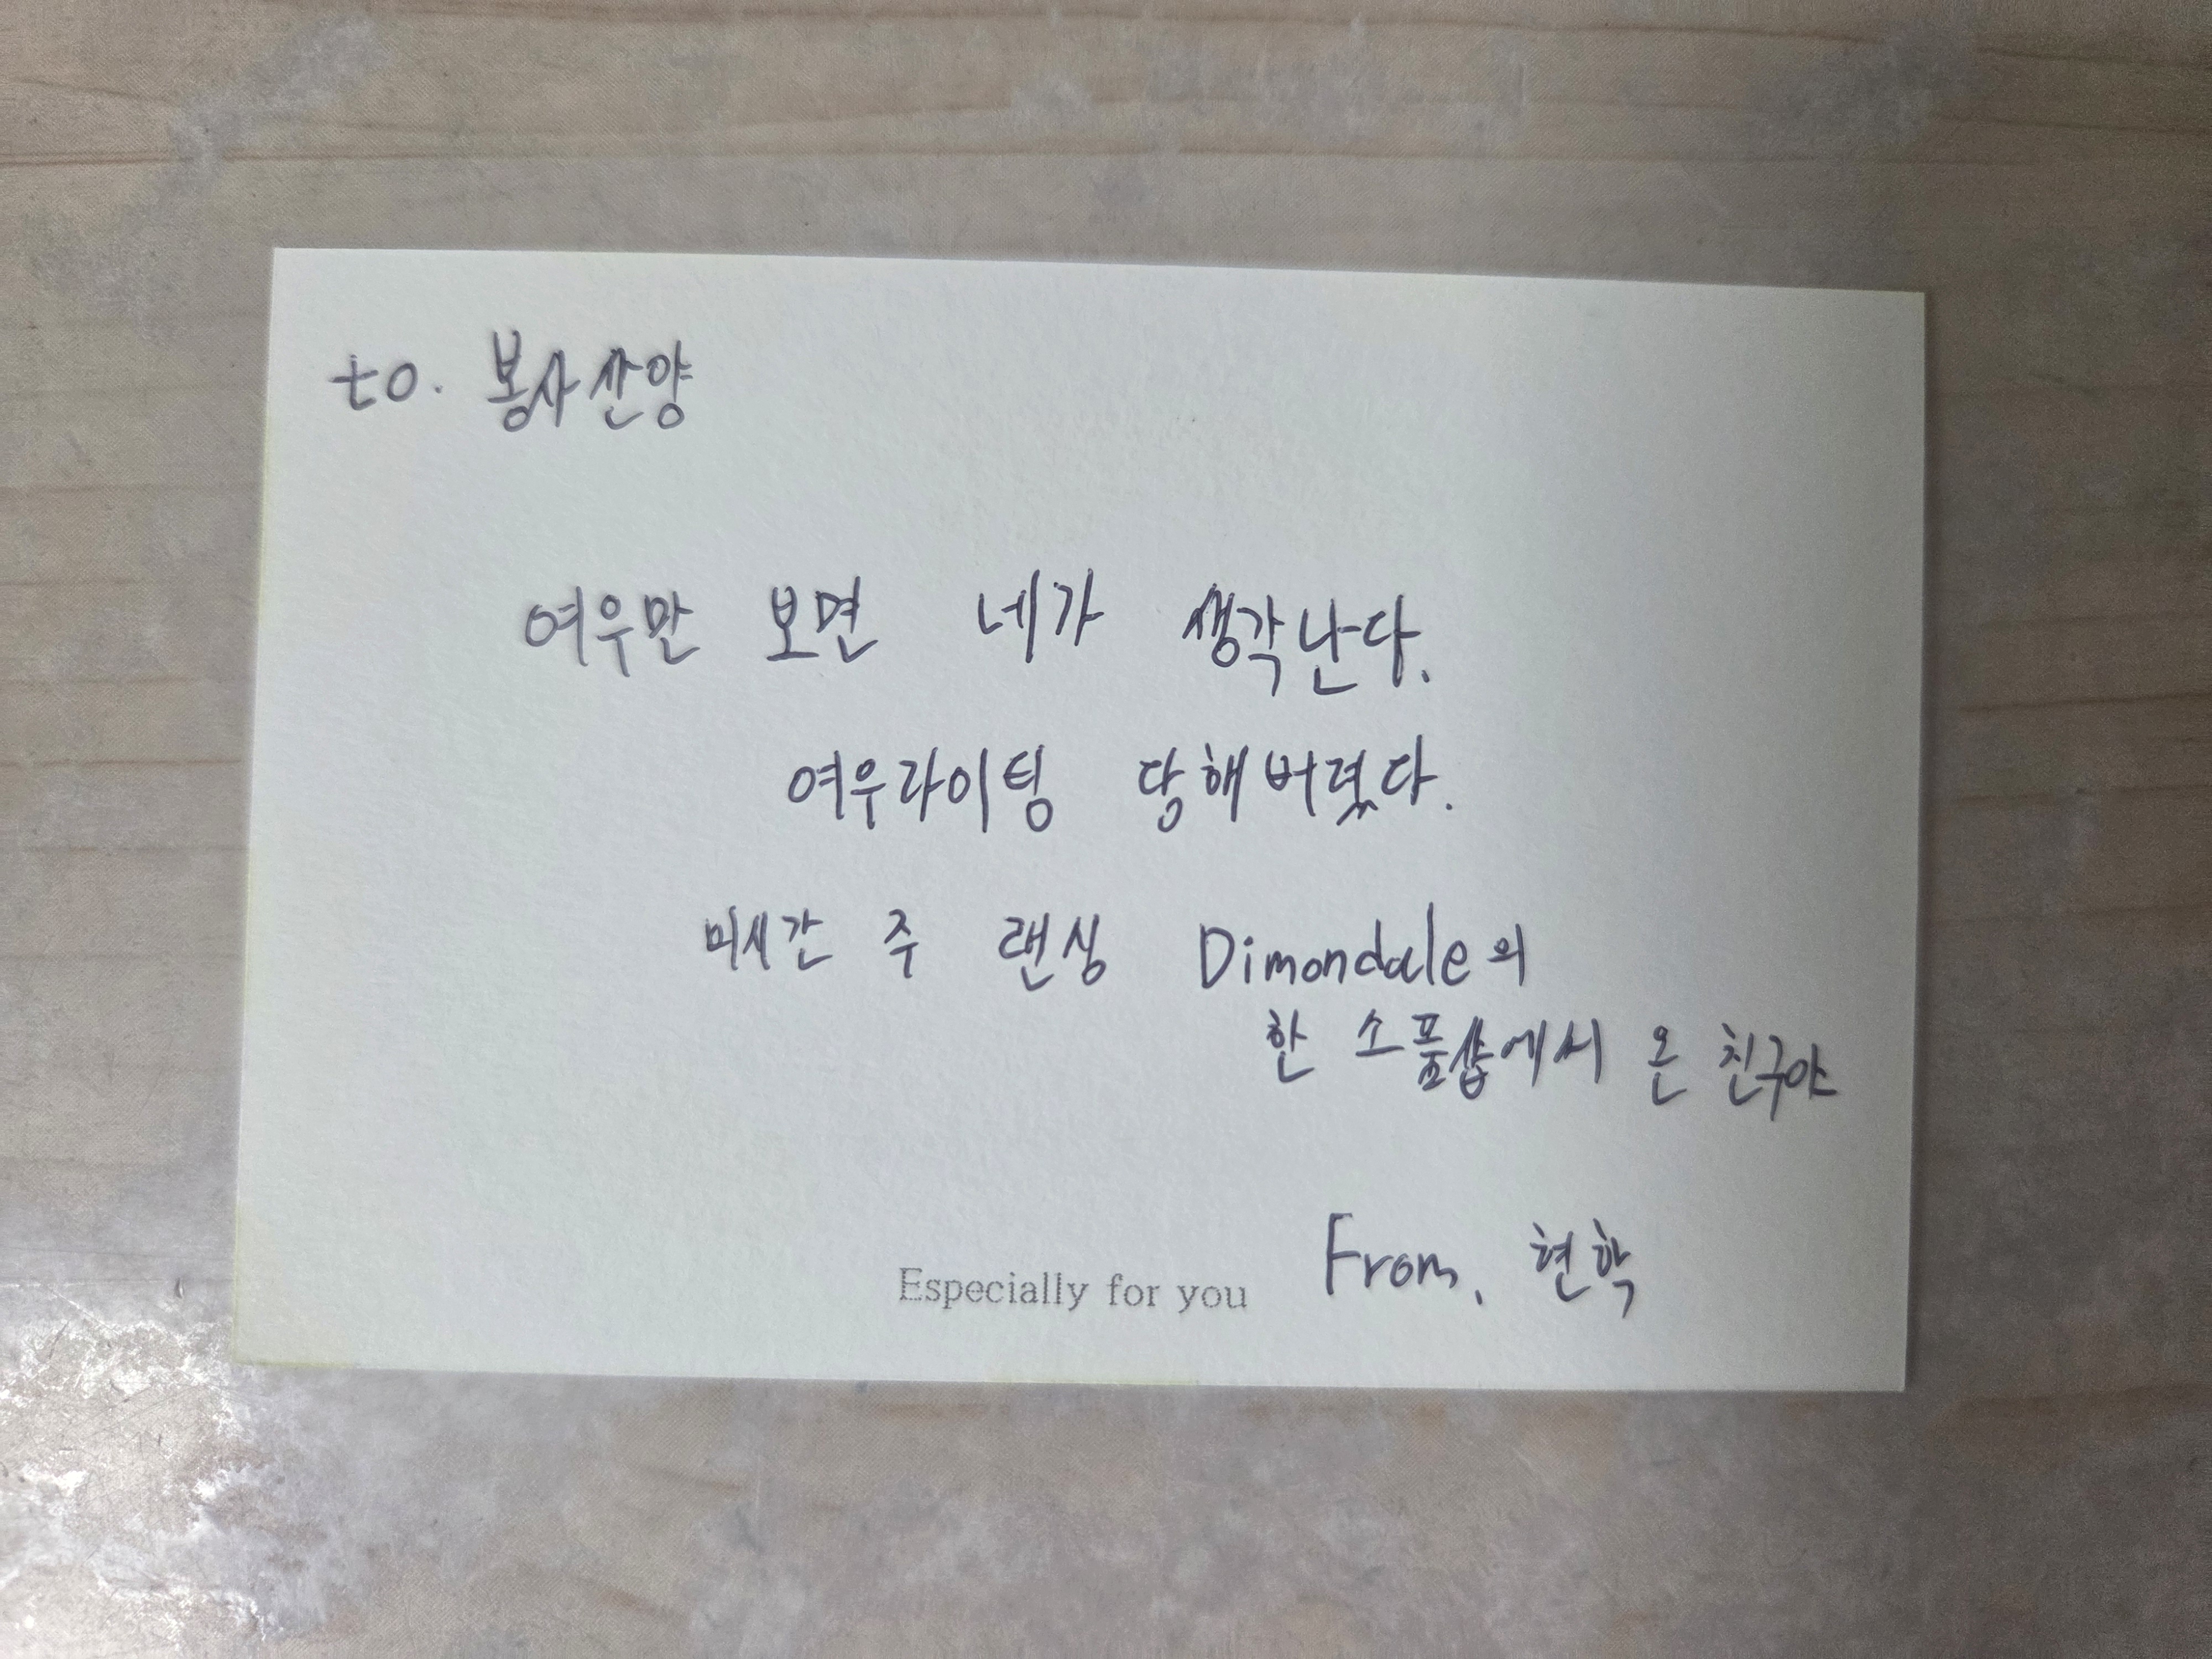 to. 봉사산양
여우만 보면 네가 생각난다.
여우라이팅 당해버렸다.
미시간 주 랜싱 Dimondale의
한 소품샵에서 온 친구야
From. 현학
Especially for you